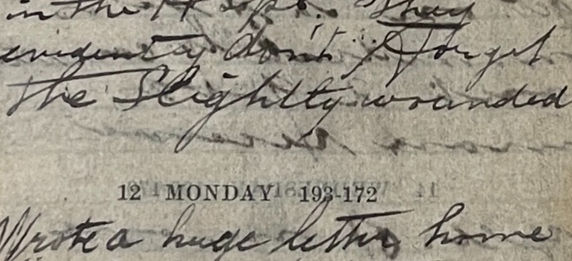 in the Hospt. They
evidently don't forget
the Slightly wounded
12 MONDAY 193-172
Wrote a huge letter home